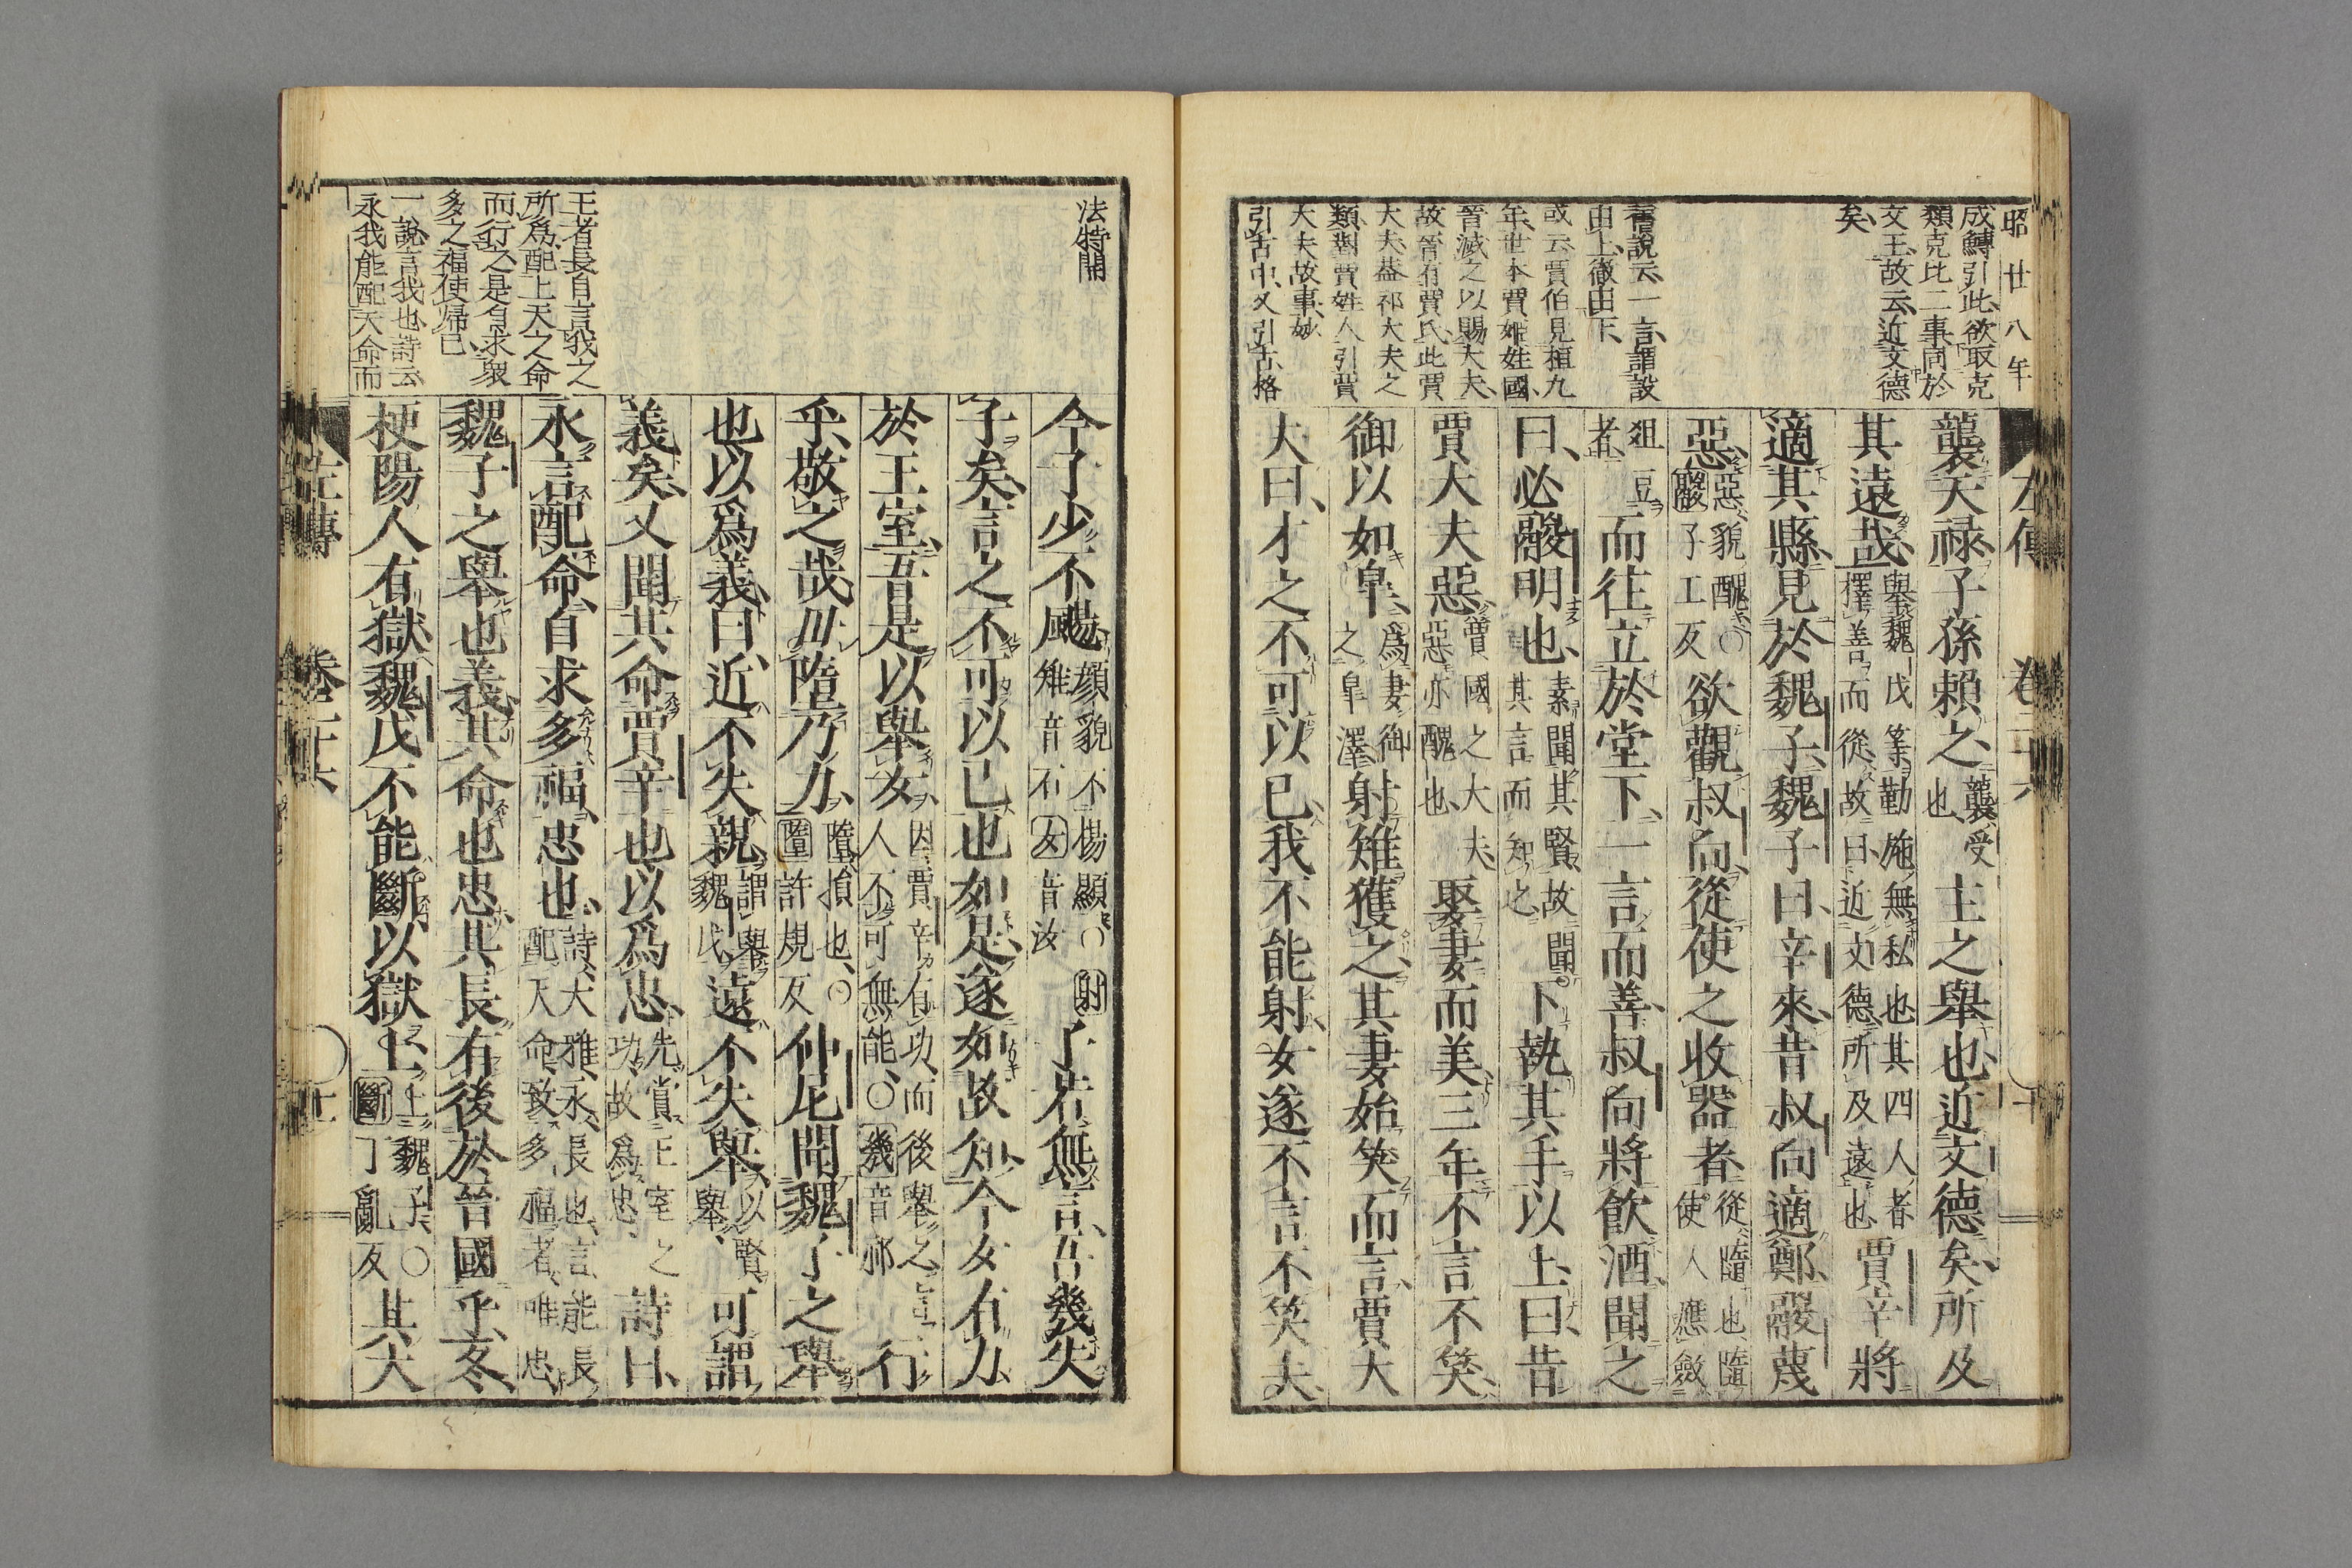 昭廿八年
成鱄引此欲取克
類克比二事同於
文王故云近文德
矣
舊說云一言謂設
由上徹由下
或云賈伯見桓九
年世本賈姬姓國
晉滅之以賜大夫
故晉有賈氏此賈
大夫蓋祁大夫之
類對賈姓人引賈
大夫故事妙
引古中又引古格
左傳 卷二十六
襲天祿子孫賴之襲受也主之舉也近文德矣所及
其遠哉舉魏戊等勤施無私也其四人者擇善而從故曰近文德所及遠也賈辛將
適其縣見於魏子魏子曰辛來昔叔向適鄭鬷蔑
惡惡貌醜〇鬷子工反欲觀叔向從使之收器者從隨也隨使人應斂
俎豆者而往立於堂下一言而善叔向將飲酒聞之
曰必鬷明也素聞其賢故聞其言而知之下執其手以上曰昔
賈大夫惡賈國之大夫惡亦醜也娶妻而美三年不言不笑
御以如皐爲妻御之皐澤射雉獲之其妻始笑而言賈大
夫曰才之不可以已我不能射女遂不言不笑夫
法特開
今子少不颺顏貌不揚顯〇射雉音石女音汝子若無言吾幾失
子矣言之不可以已也如是遂如故知今女有力
於王室吾是以舉女因賈辛有功而後舉之言人不可無能〇幾音祁行
乎敬之哉毋隋乃力隋損也〇隋許規反仲尼聞魏子之舉
也以爲義曰近不失親謂舉魏戊遠不失舉以賢舉可謂
義矣又聞其命賈辛也以爲忠先賞王室之功故爲忠詩曰
永言配命自求多福忠也詩大雅永長也言能長配天命致多福者唯忠
魏子之舉也義其命也忠其長有後於晉國乎冬
梗陽人有獄魏戊不能斷以獄上上魏子〇斷丁亂反其大
王者長自言我之
所爲配上天之命
而行之是自求衆
多之福使歸己
一說言我也詩云
永我能配天命而
左傳 卷二十六